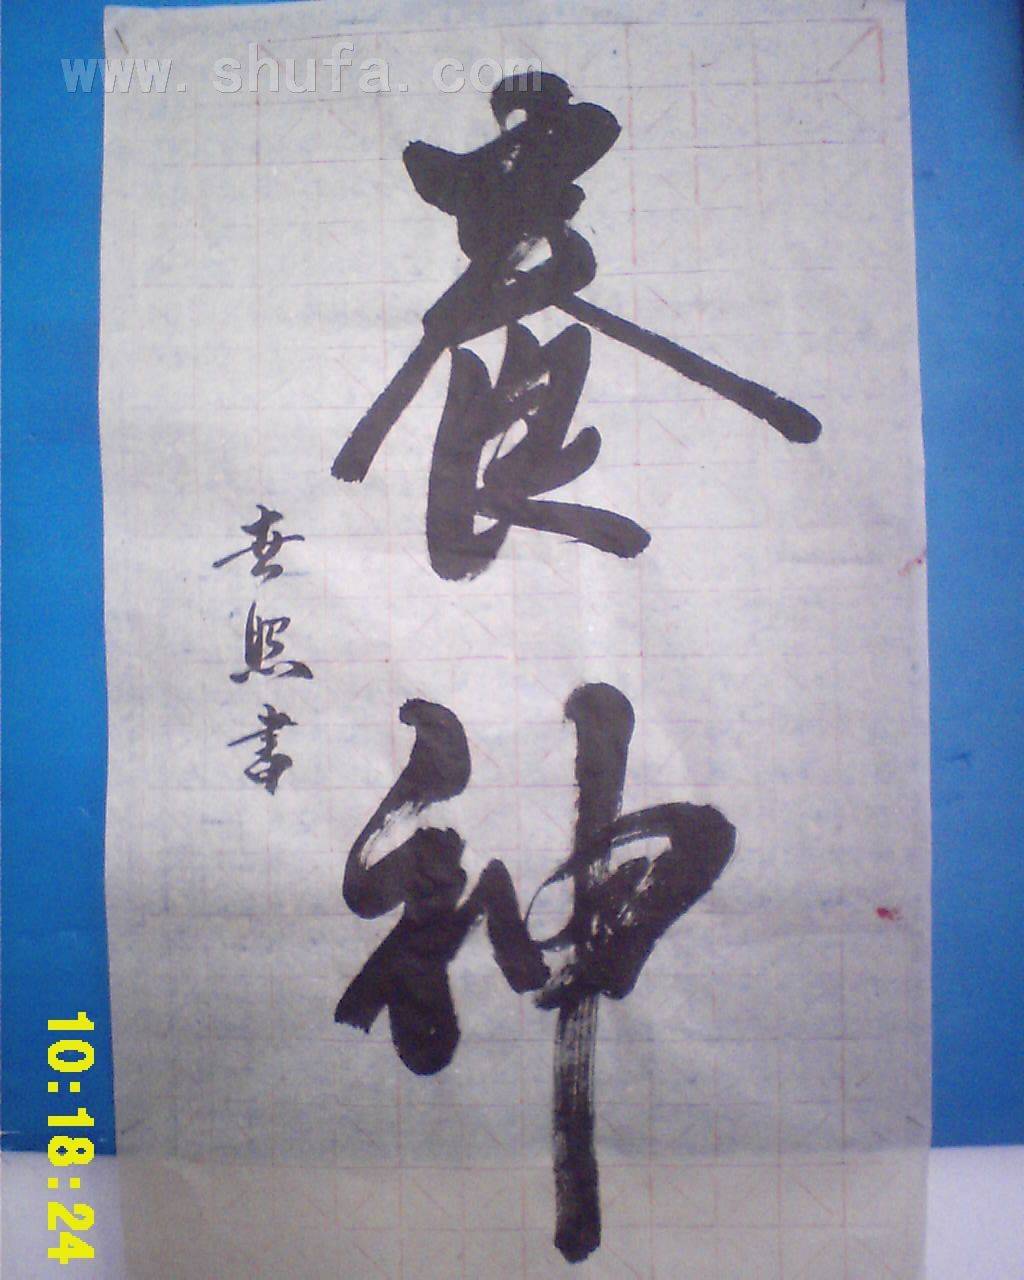 www.shufa.com
養神
春照書
10:18:24